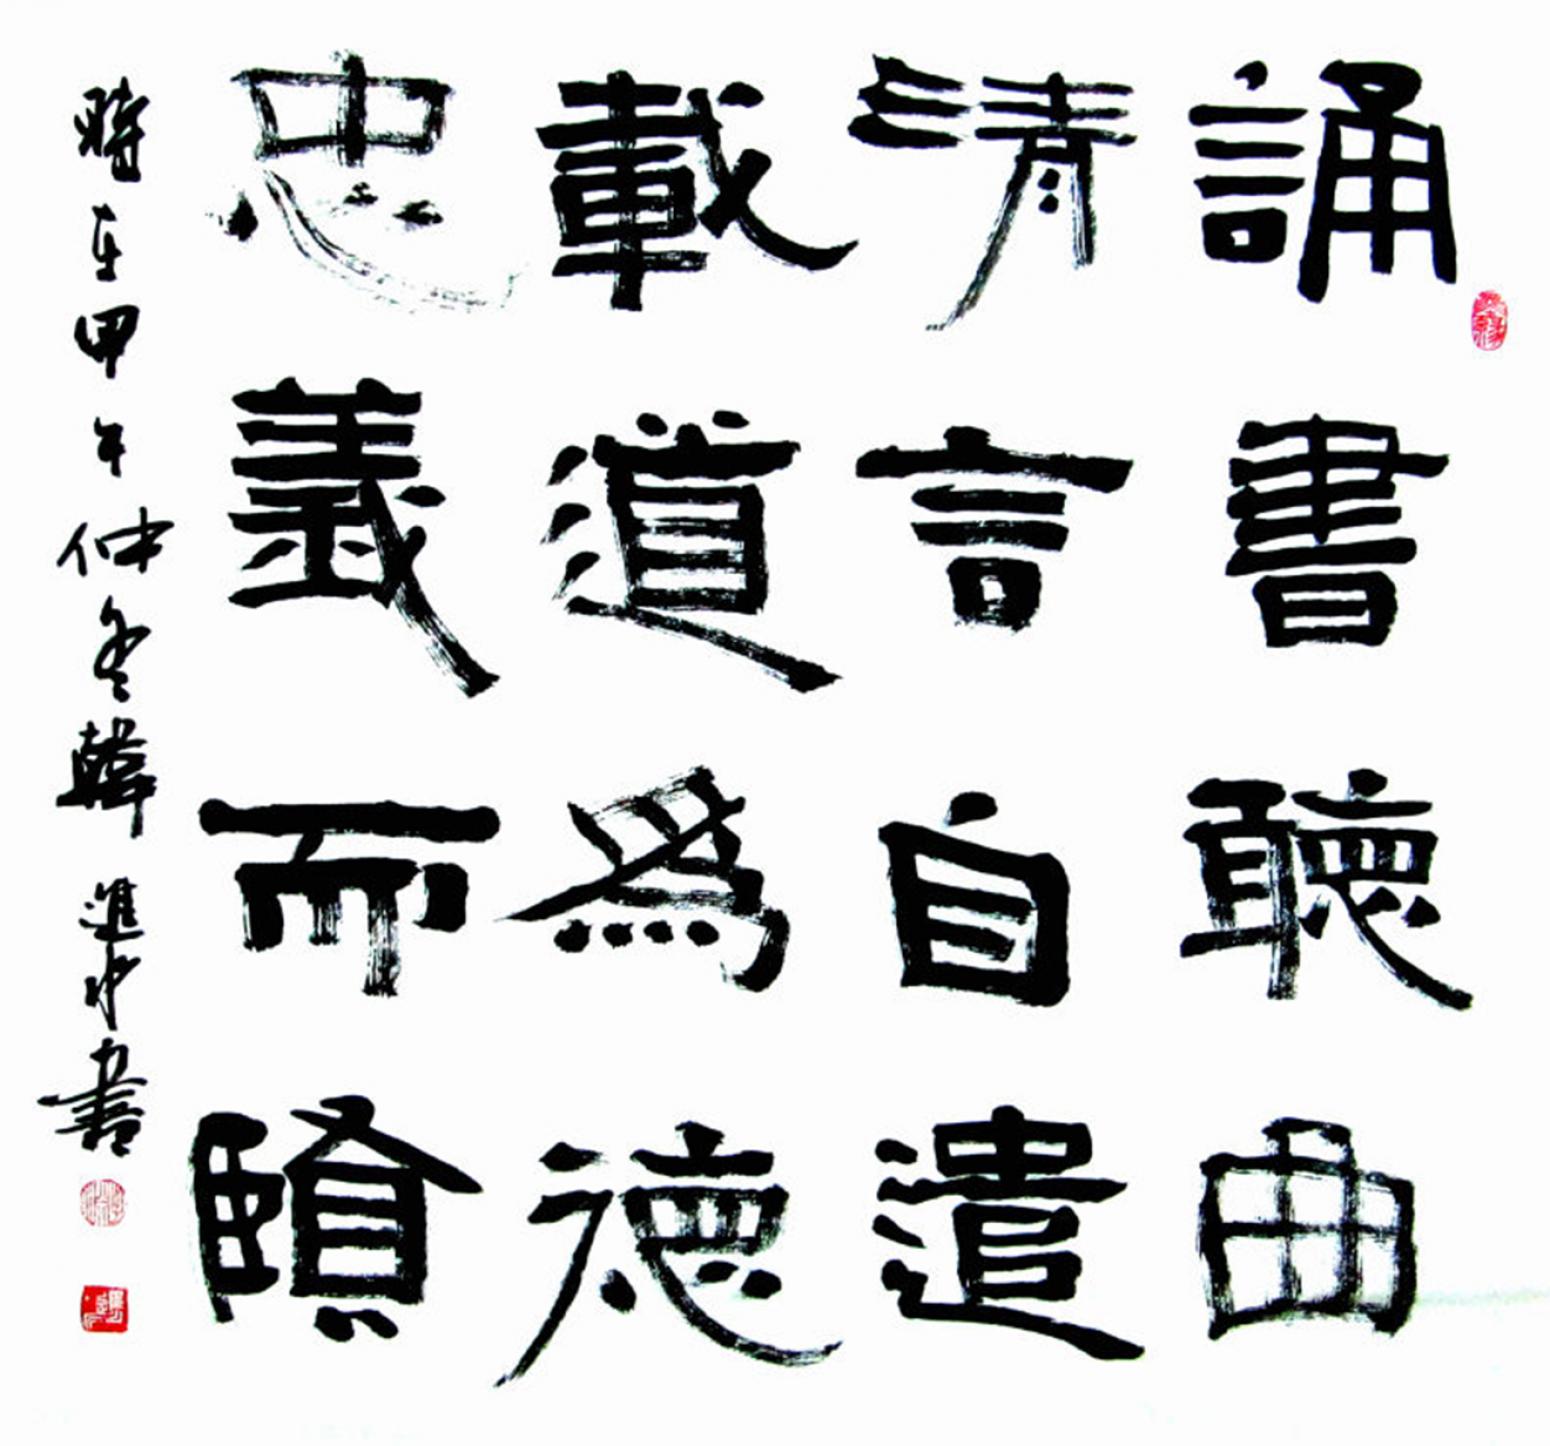 誦書聽曲
清言自遣
載道為德
忠義而頤
時在甲午仲冬韓進水書